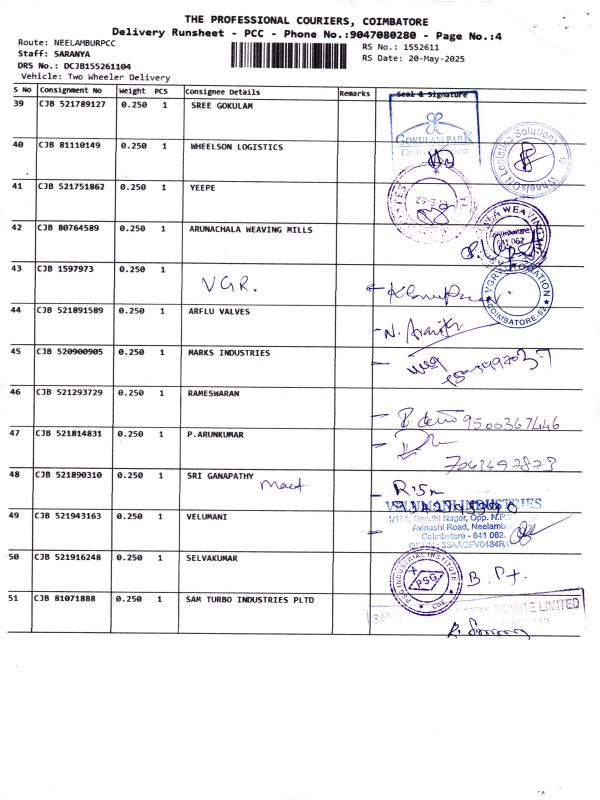 THE PROFESSIONAL COURIERS, COIMBATORE
Delivery Runsheet - PCC - Phone No.:9047080280 - Page No.:4
Route: NEELAMBURPCC
Staff: SARANYA
DRS No.: DCJB155261104
Vehicle: Two Wheeler Delivery
RS No.: 1552611
RS Date: 20-May-2025
S No Consignment No Weight PCS Consignee Details Remarks Seal & Signature
39 CJB 521789127 0.250 1 SREE GOKULAM
GOKULAM PARK
Coimbatore
40 CJB 81110149 0.250 1 WHEELSON LOGISTICS
WheelsON Logistics Solutions
41 CJB 521751862 0.250 1 YEEPE
42 CJB 80764589 0.250 1 ARUNACHALA WEAVING MILLS
WEAVING
641 062
43 CJB 1597973 0.250 1
VGR.
VGR AUTOMATION
COIMBATORE-62
44 CJB 891891589 0.250 1 ARFLU VALVES
45 CJB 520900905 0.250 1 MARKS INDUSTRIES
46 CJB 521293729 0.250 1 RAMESWARAN
9500367446
47 CJB 521814831 0.250 1 P.ARUNKUMAR
48 CJB 521890310 0.250 1 SRI GANAPATHY
49 CJB 521943163 0.250 1 VELUMANI
VELUMANI INDUSTRIES
Gandhi Nagar, Opp. N.P.
Avinashi Road, Neelamb
Coimbatore - 641 062.
50 CJB 521916248 0.250 1 SELVAKUMAR
PSG INDUSTRIAL INSTITUTE
PSG
CBE
51 CJB 81071888 0.250 1 SAM TURBO INDUSTRIES PLTD
PRIVATE LIMITED